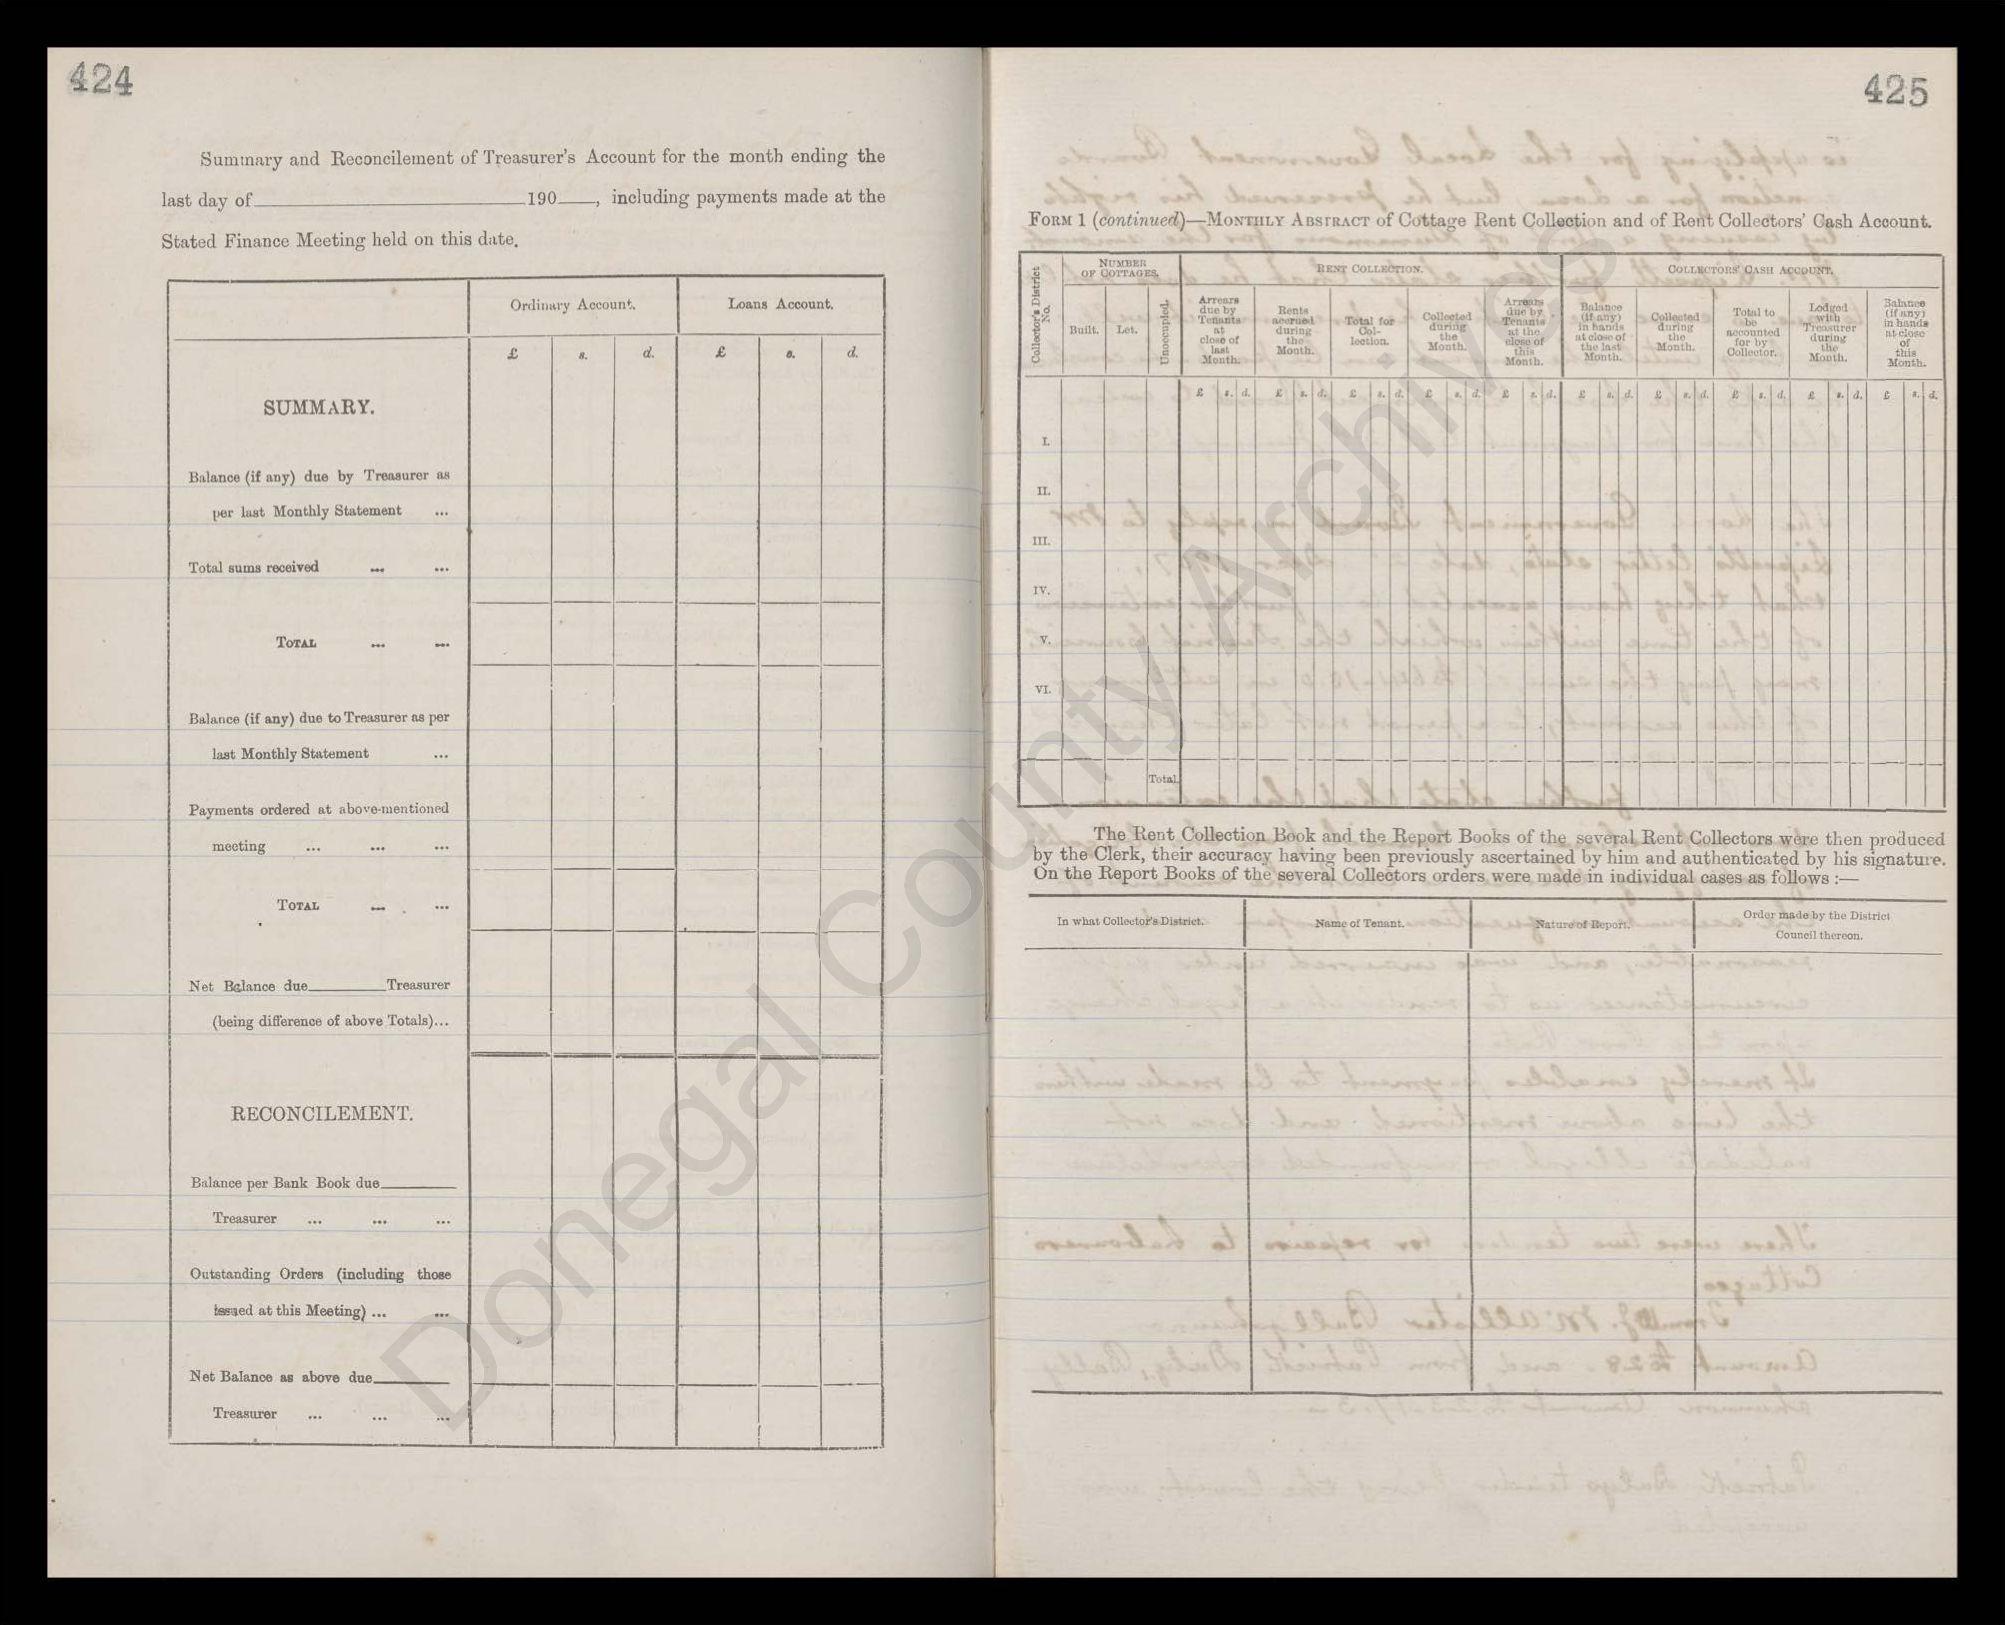 424
Summary and Reconcilement of Treasurer's Account for the month ending the
last day of 190 , including payments made at the
Stated Finance Meeting held on this date.
Ordinary Account. Loans Account.
£ s. d. £ s. d.
SUMMARY.
Balance (if any) due by Treasurer as
per last Monthly Statement ...
Total sums received ... ...
TOTAL ... ...
Balance (if any) due to Treasurer as per
last Monthly Statement ...
Payments ordered at above-mentioned
meeting ... ... ...
TOTAL ... ...
Net Balance due Treasurer
(being difference of above Totals)...
RECONCILEMENT.
Balance per Bank Book due
Treasurer ... ... ...
Outstanding Orders (including those
issued at this Meeting) ... ...
Net Balance as above due
Treasurer ... ... ...
425
FORM 1 (continued)—MONTHLY ABSTRACT of Cottage Rent Collection and of Rent Collectors' Cash Account.
Collector's District No.
NUMBER OF COTTAGES.
RENT COLLECTION.
COLLECTORS' CASH ACCOUNT.
Built.
Let.
Unoccupied.
Arrears due by Tenants at close of last Month.
Rents accrued during the Month.
Total for Collection.
Collected during the Month.
Arrears due by Tenants at the close of this Month.
Balance (if any) in hands at close of the last Month.
Collected during the Month.
Total to be accounted for by Collector.
Lodged with Treasurer during the Month.
Balance (if any) in hands at close of this Month.
£ s. d. £ s. d. £ s. d. £ s. d. £ s. d. £ s. d. £ s. d. £ s. d. £ s. d. £ s. d.
I.
II.
III.
IV.
V.
VI.
Total.
The Rent Collection Book and the Report Books of the several Rent Collectors were then produced
by the Clerk, their accuracy having been previously ascertained by him and authenticated by his signature.
On the Report Books of the several Collectors orders were made in individual cases as follows :—
In what Collector's District. Name of Tenant. Nature of Report. Order made by the District
Council thereon.
Donegal County Archives